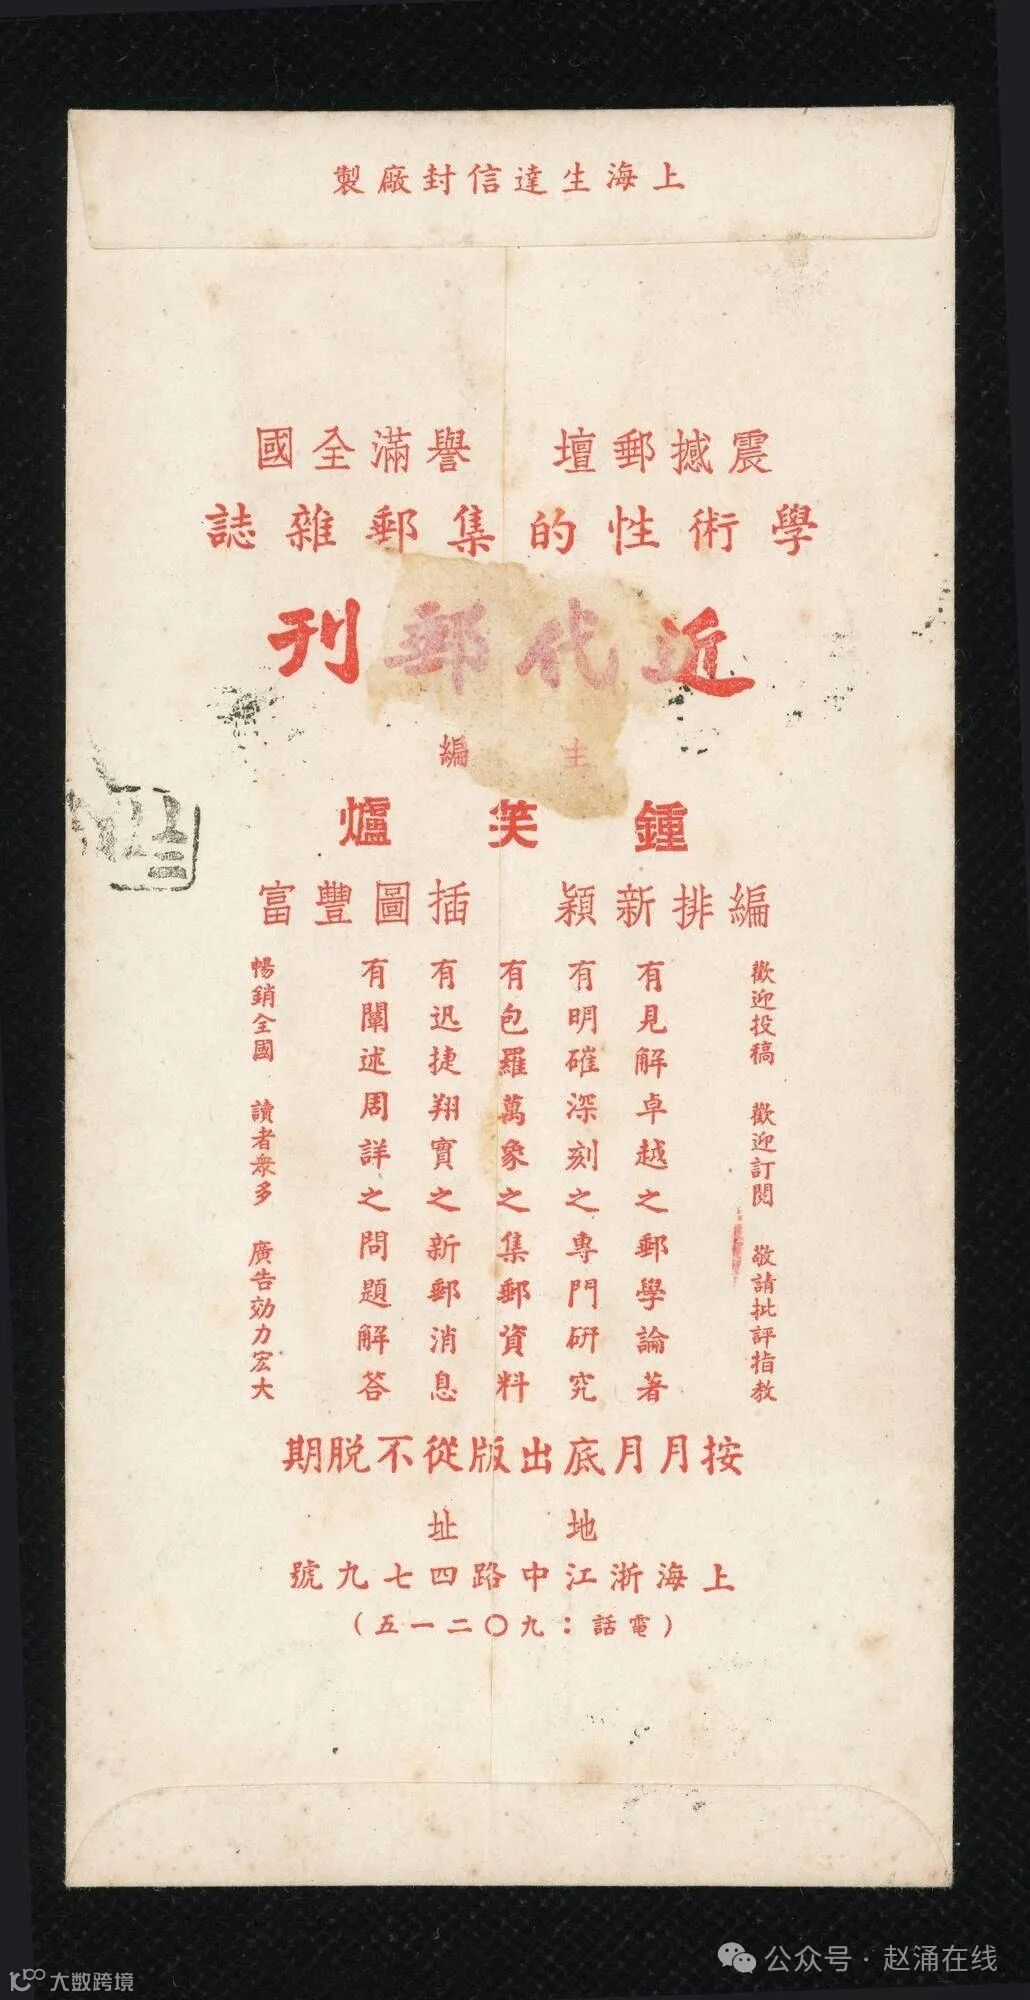 上海生達信封廠製
震撼郵壇 譽滿全國
學術性的集郵雜誌
近代郵刊
主編
鍾笑爐
編排新穎 插圖豐富
歡迎投稿 歡迎訂閱 敬請批評指教
有見解卓越之郵學論著
有明確深刻之專門研究
有包羅萬象之集郵資料
有迅捷翔實之新郵消息
有闡述周詳之問題解答
暢銷全國 讀者衆多 廣告効力宏大
按月月底出版從不脫期
地址
上海浙江中路四七九號
(電話：九〇二一五)
公众号·赵涌在线
大数跨境